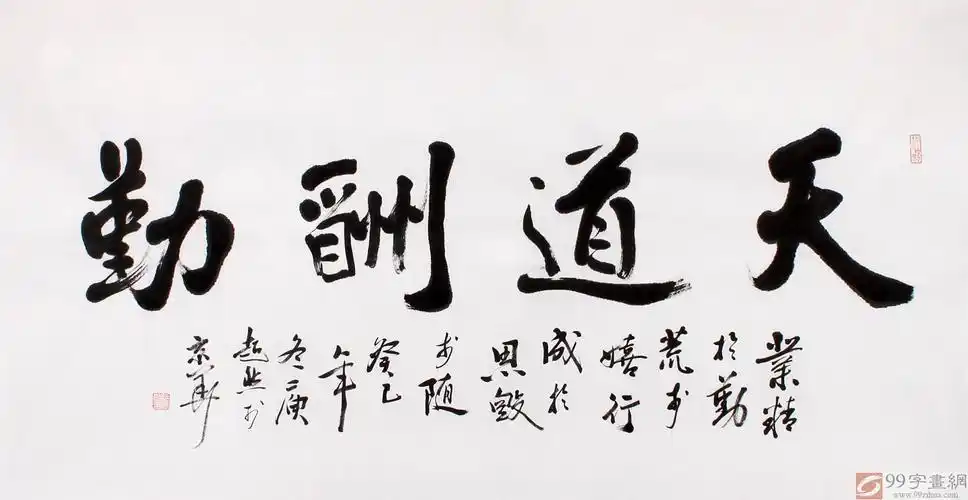 天道酬勤
業精
於勤
荒於
嬉行
成於
思毀
於随
癸巳
年
冬庚
超然於
京華
99字畫網
www.99zihua.com